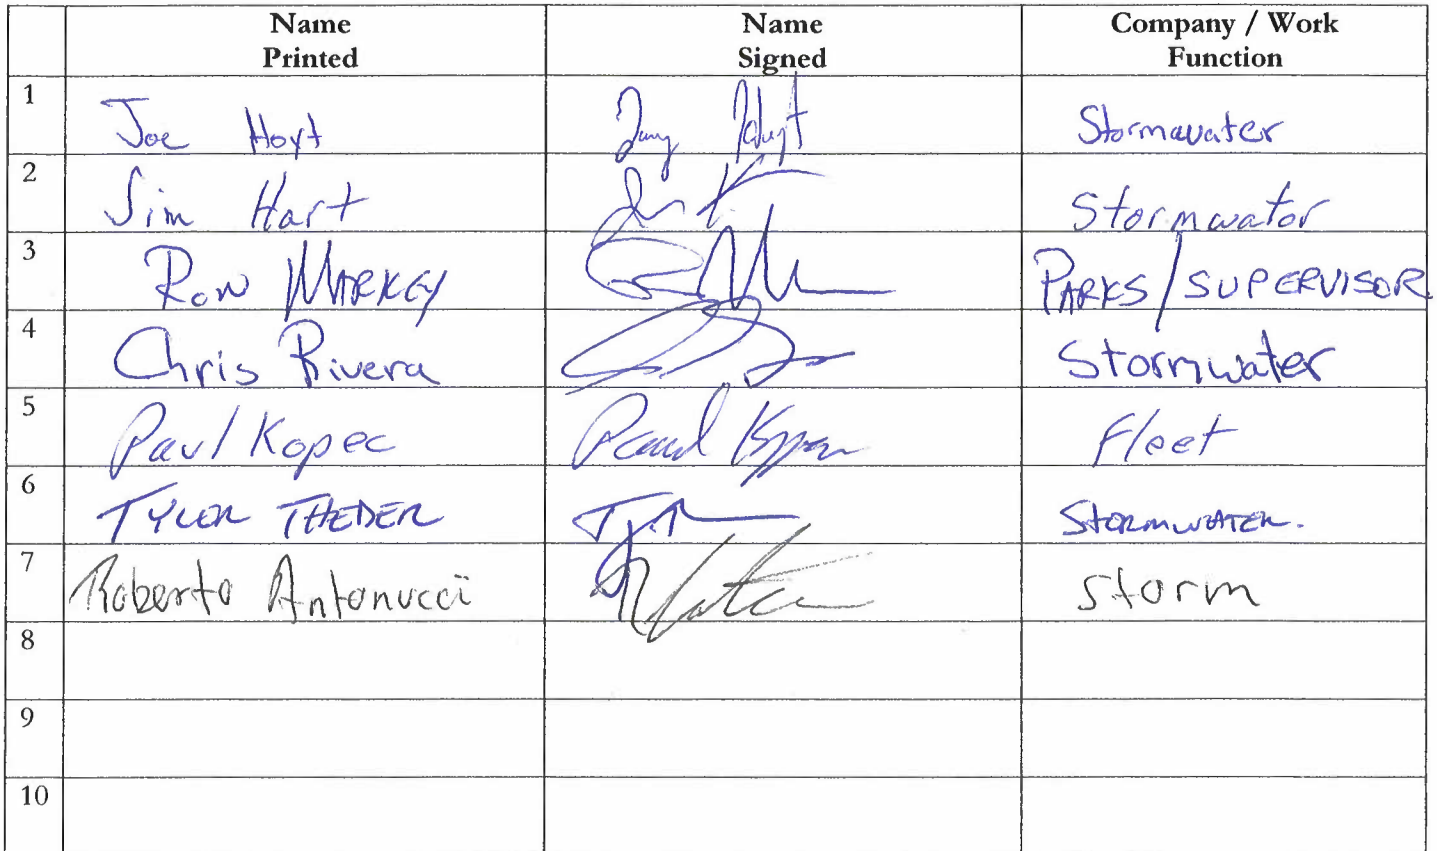 Name Printed Name Signed Company / Work Function
1 Joe Hoyt Stormwater
2 Jim Hart Stormwator
3 RON MARKEY PARKS/SUPERVISOR
4 Chris Rivera Stormwater
5 Paul Kopec Paul Fleet
6 TYLER THEDER STORMWATER.
7 Roberto Antonucci Storm
8
9
10